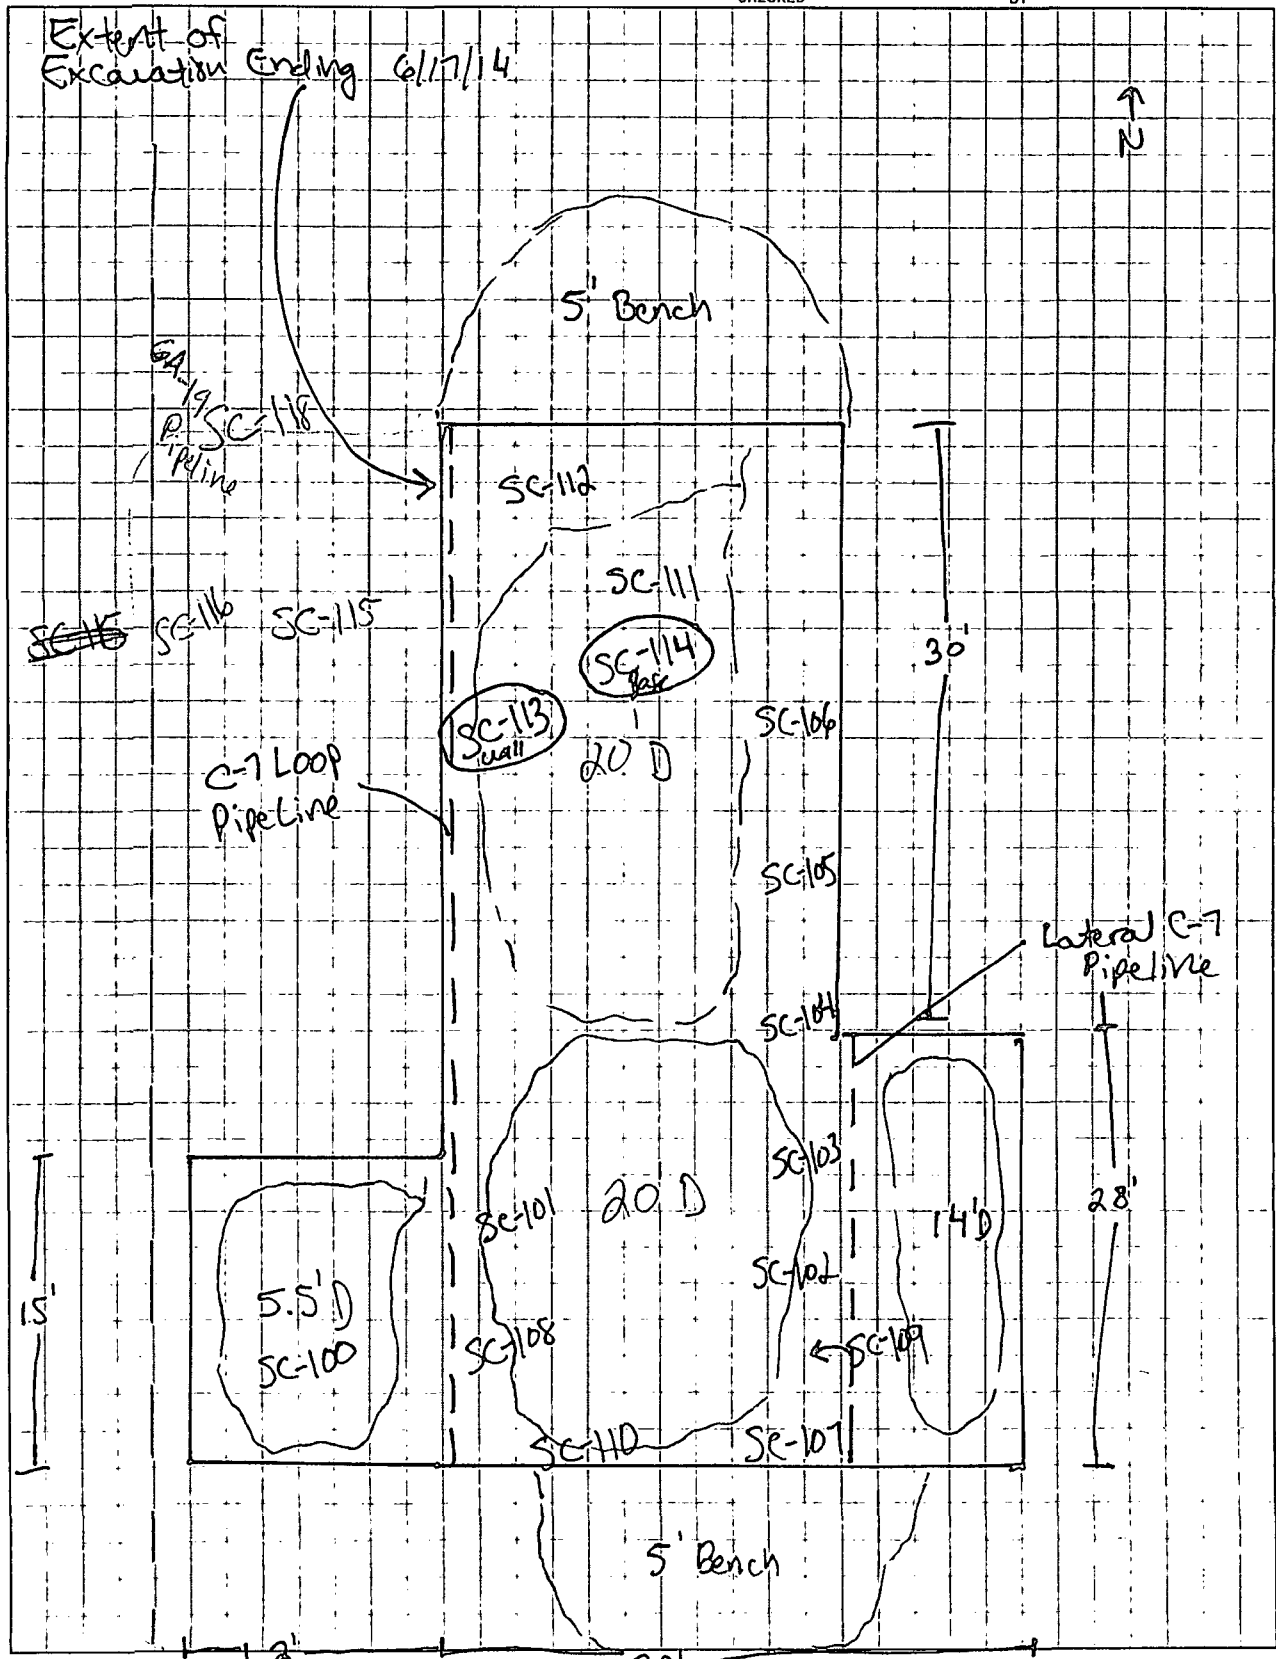 Extent of
Excavation Ending 6/17/14
↑
N
5' Bench
GA-19
Pipeline
SC-118
SC-112
SC-111
SC-116
SC-115
SC-114
Base
30'
SC-113
wall
SC-106
20' D
C-7 Loop
Pipeline
SC-105
Lateral C-7
Pipeline
SC-104
SC-103
SC-101
20' D
14'D
28'
SC-102
15'
5.5' D
SC-108
SC-109
SC-100
SC-110
SC-107
5' Bench